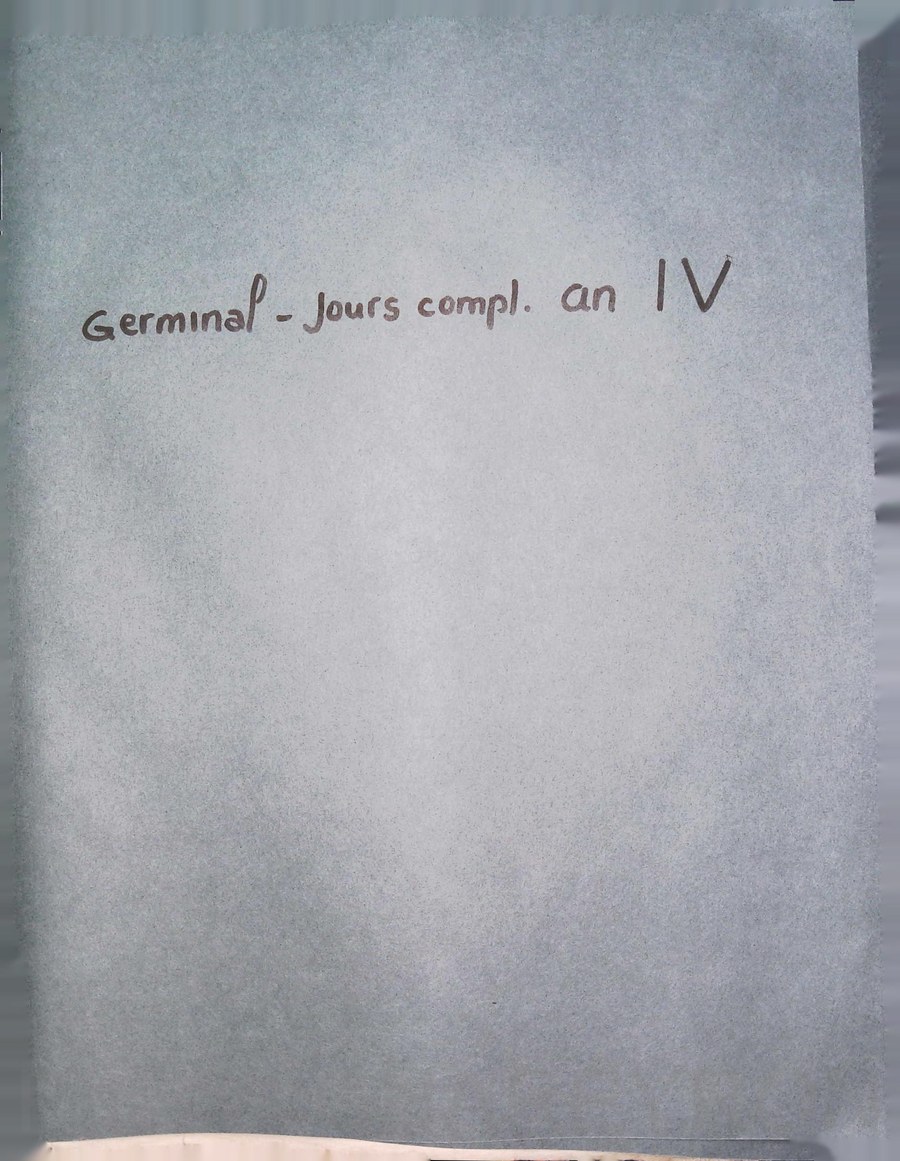 Germinal - Jours compl. an IV